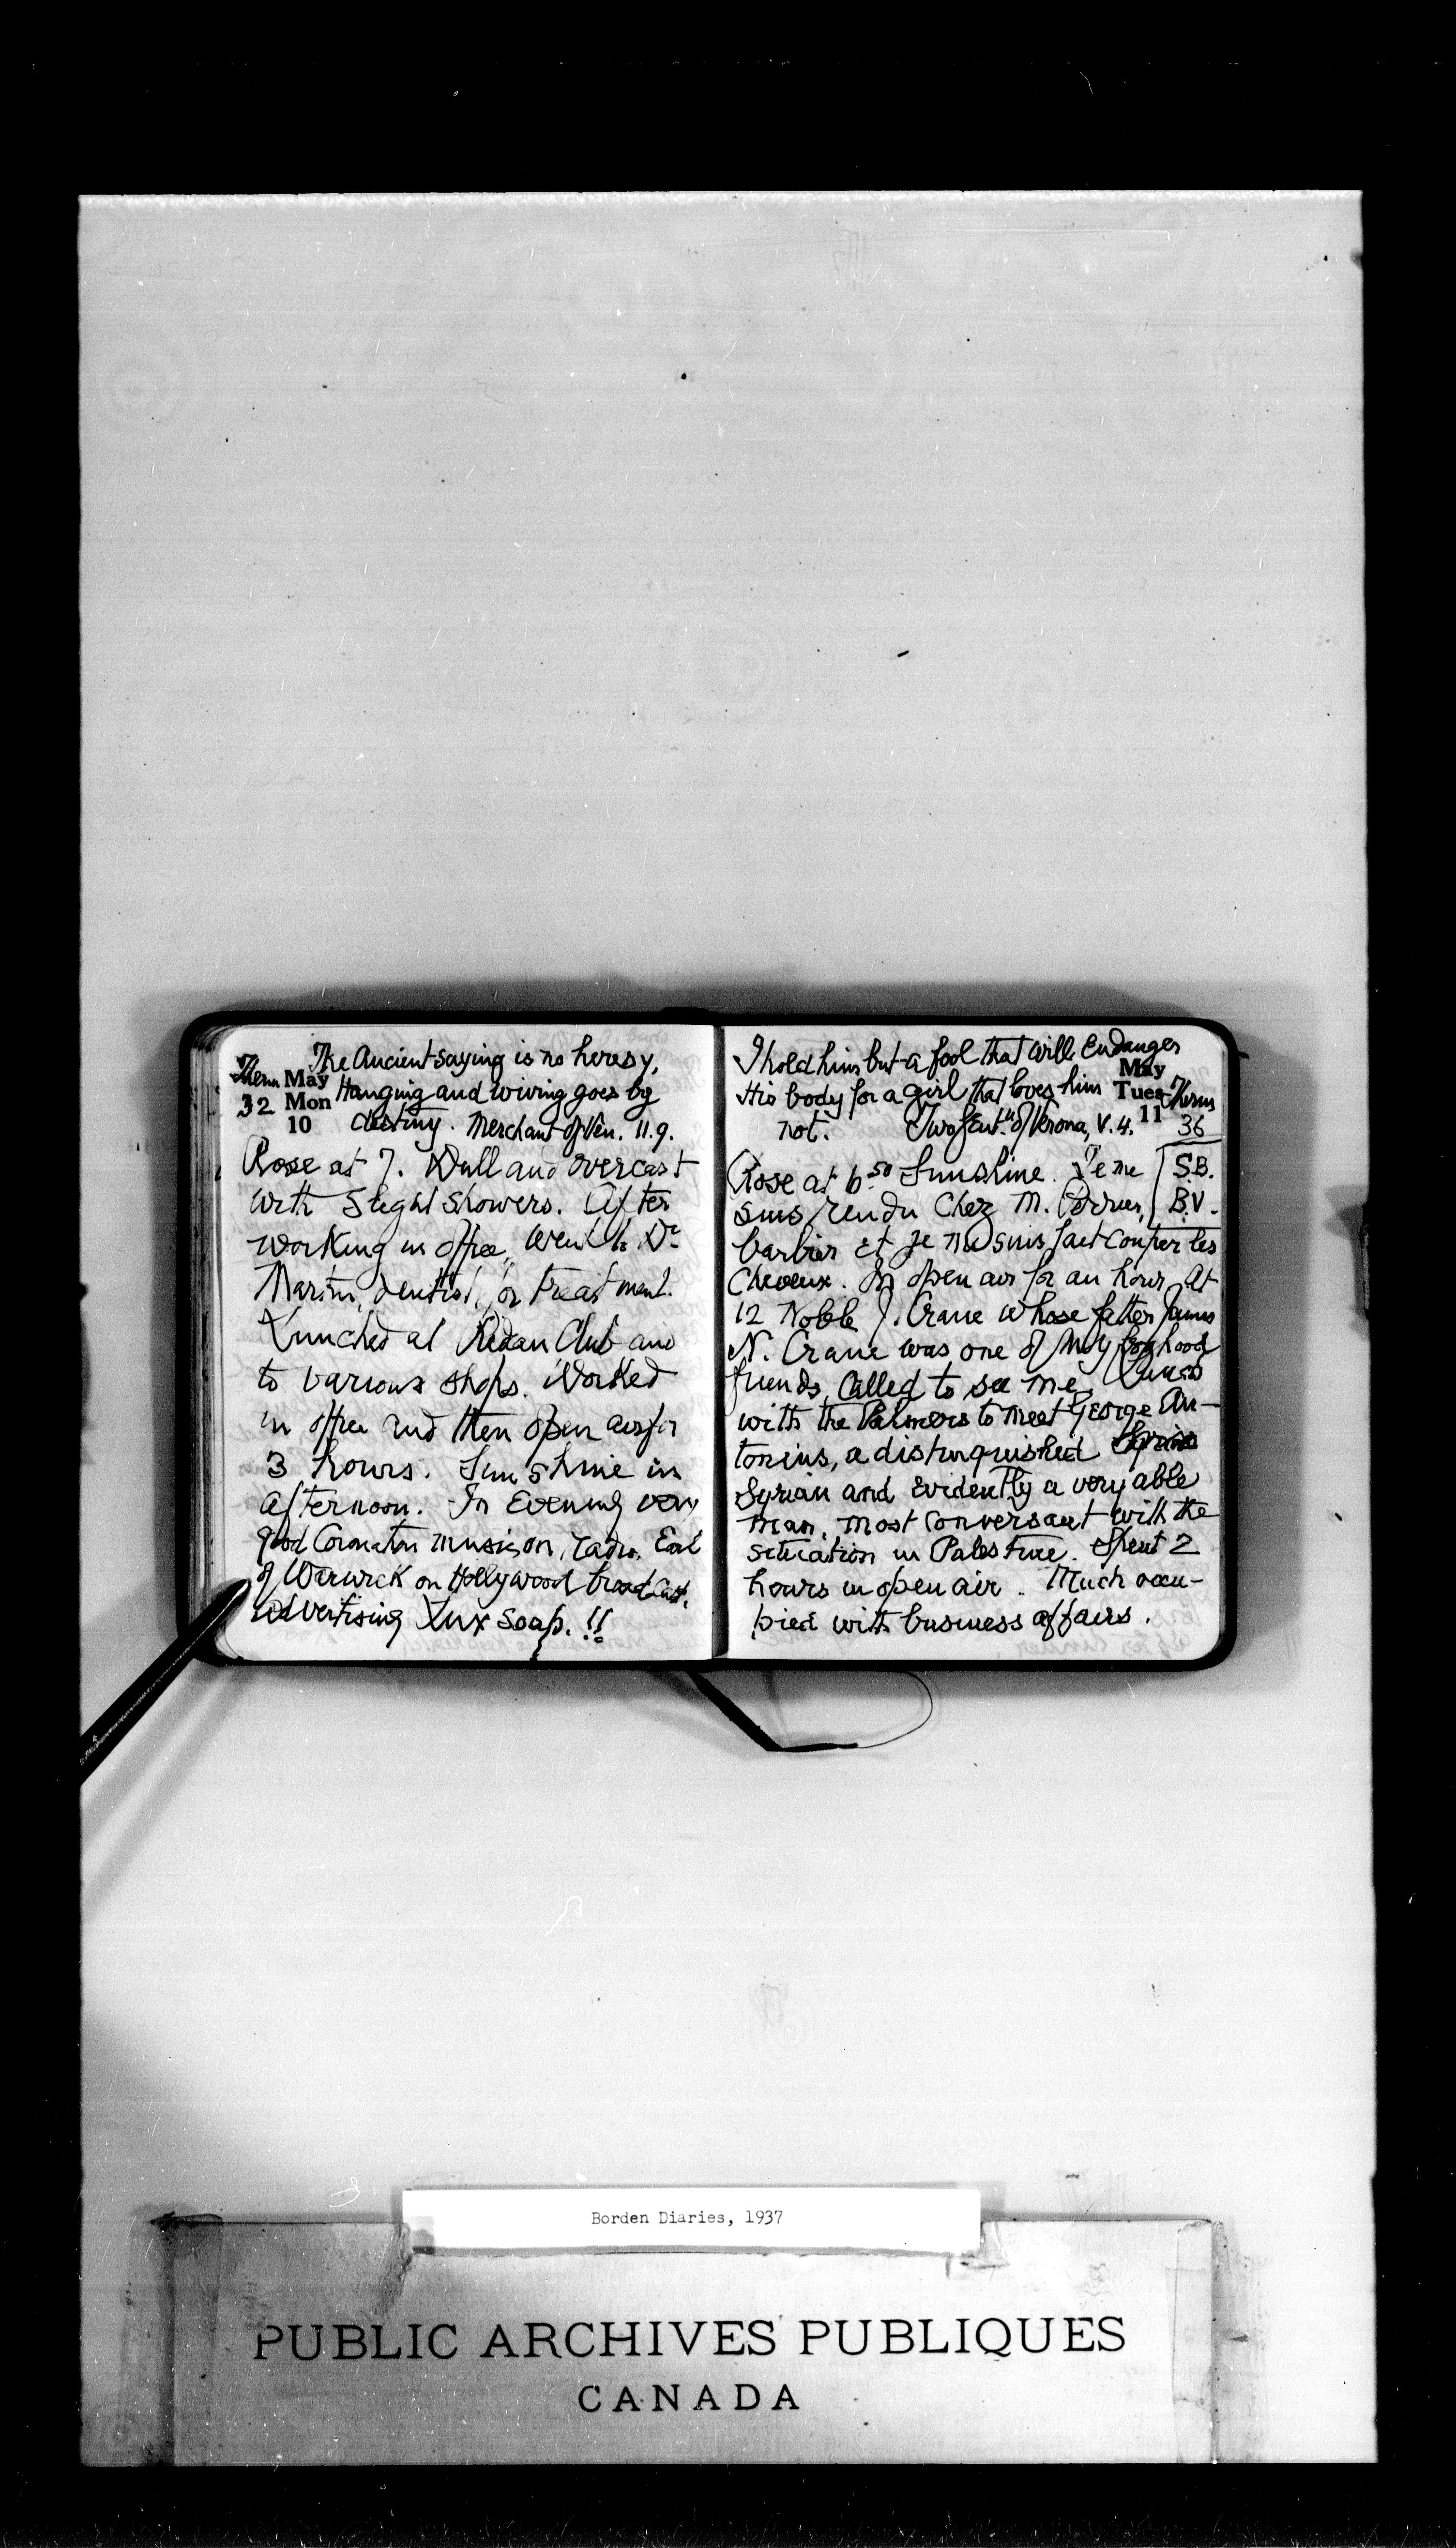 The Ancient saying is no heresy,
Therm May Hanging and wiving goes by
32 Mon
10 destiny. Merchant of Ven. 11.9.
Rose at 7. Dull and overcast
with slight showers. After
working in office, went to Dr
Martin, dentist, for treatment.
Lunched at Rideau Club and
to various shops. Worked
in office and then open air for
3 hours. Sunshine in
afternoon. In Evening very
good Coronation music on radio. Earl
of Warwick on Hollywood broadcast,
advertising Lux Soap. !!
I hold him but a fool that will Endanger
His body for a girl that loves him
not. Two Gent. of Verona, V. 4.
May
Tues Therm
11 36
Rose at 6.50 Sunshine. Je me S.B.
suis rendu chez M. Perrier, B.V.
barbier et je me suis fait couper les
cheveux. In open air for an hour. At
12 Noble J. Crane whose father James
N. Crane was one of my boyhood
friends, called to see me. Lunch
with the Palmers to meet George An-
tonius, a distinguished
Syrian and Evidently a very able
man, most conversant with the
situation in Palestine. Spent 2
hours in open air. Much occu-
pied with business affairs.
Borden Diaries, 1937
PUBLIC ARCHIVES PUBLIQUES
CANADA